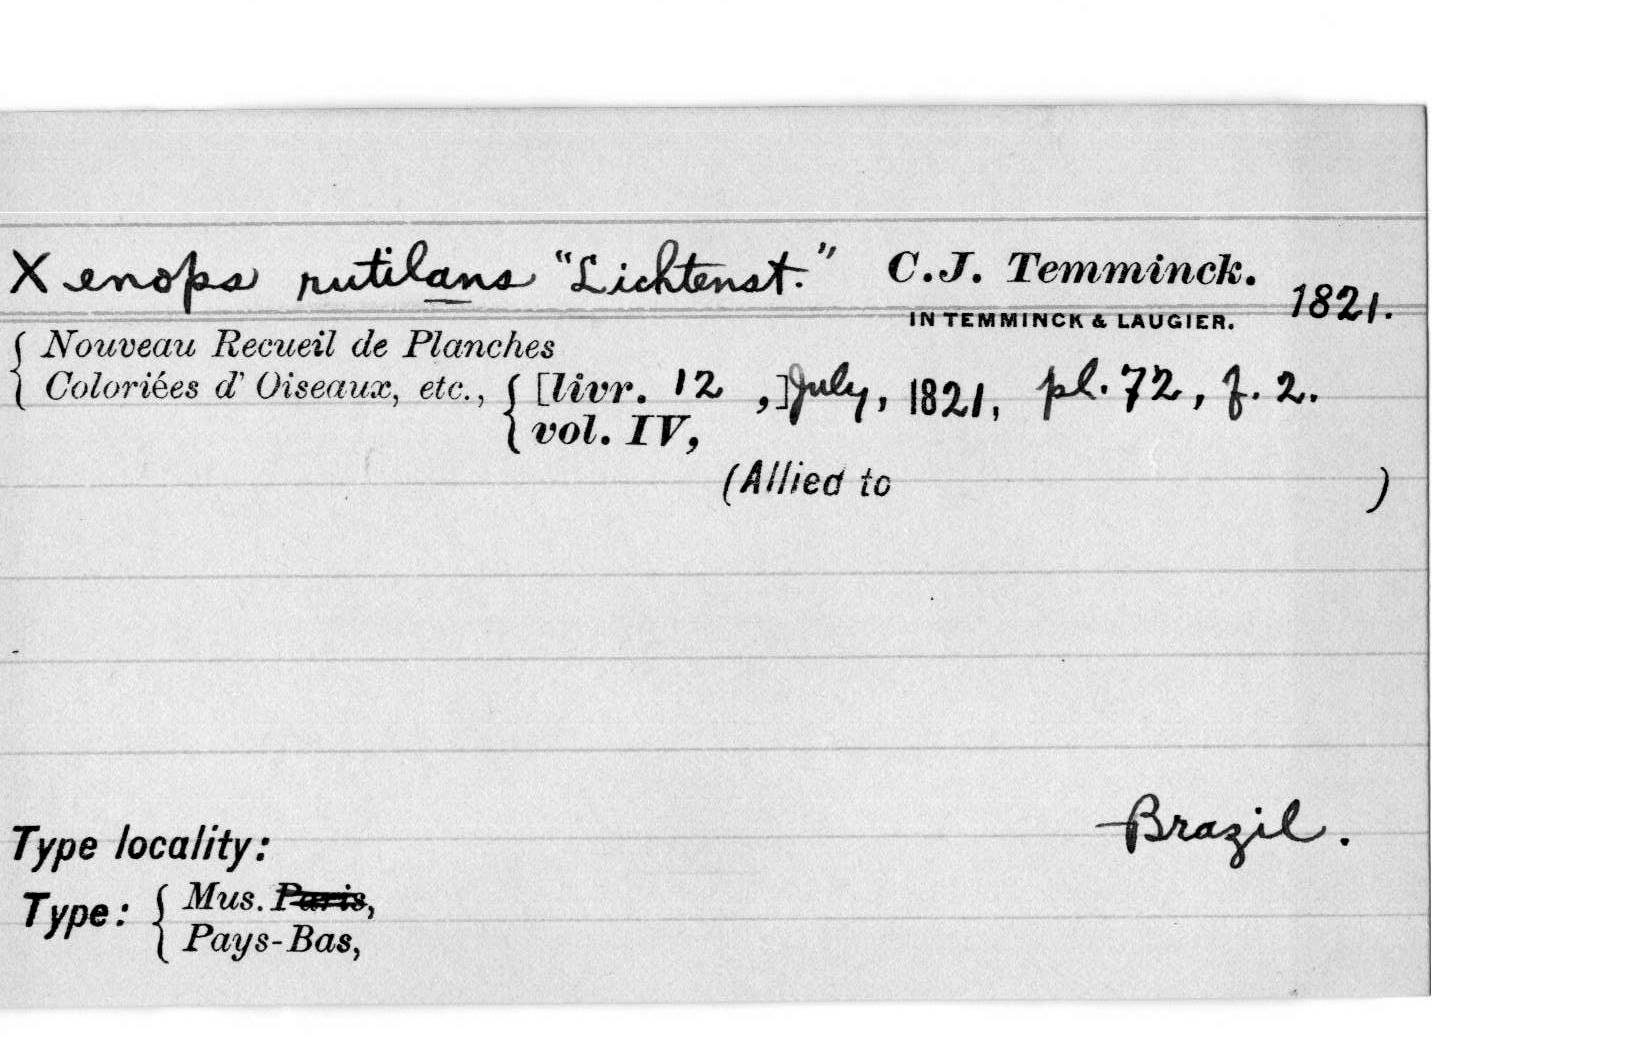 Xenops rutilans "Lichtenst." C.J. Temminck.
IN TEMMINCK & LAUGIER. 1821.
{ Nouveau Recueil de Planches
Coloriées d' Oiseaux, etc., { [livr. 12 ,] July, 1821, pl. 72, f. 2.
vol. IV,
(Allied to )
Type locality: Brazil.
Type: { Mus. Paris,
Pays-Bas,